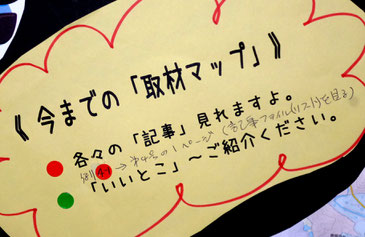 《今までの「取材マップ」》
各々の「記事」見れますよ。
例 4-1 → 第4号の1ページ (記事ファイル(リスト)を見る)
「いいとこ」～ご紹介ください。